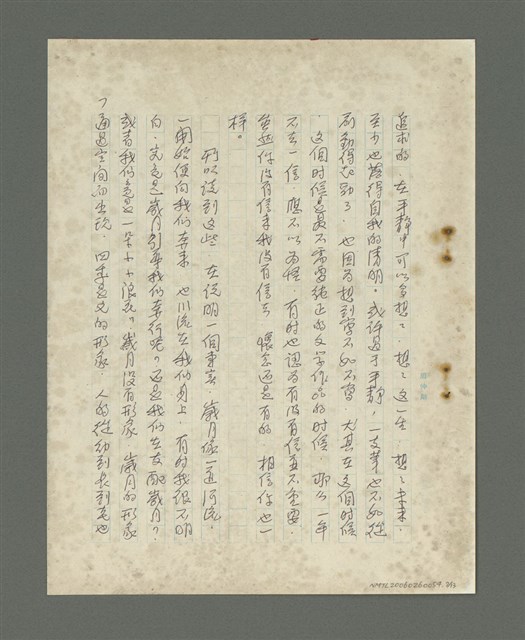 追求的。在平靜中可以多想想，想想這一生，想想未來，
至少也落得自我的清明。或許過于平靜，一支筆也不知從
何動得起勁了。也因為想到寫不如不寫，尤其在這個時候
，這個時候是最不需要純正的文学作品的時候。那么一年
不去一信，應不以為怪，有时也認為有沒有信並不重要，
雖然你沒有信來我沒有信去，懷念還是有的，相信你也一
样。
所以談到這些，在說明一個事実，歲月像一道河流，
一開始便向我們奔來，也川流在我們身上，有时我很不明
白，究竟是歲月引導我們奔行呢？还是我們在支配歲月？
或者我們竟是一朵小小浪花？歲月沒有形象，歲月的形象
乃通过空間而出現，四季是它的形象，人的從幼到長到老也
NMTL20060260059